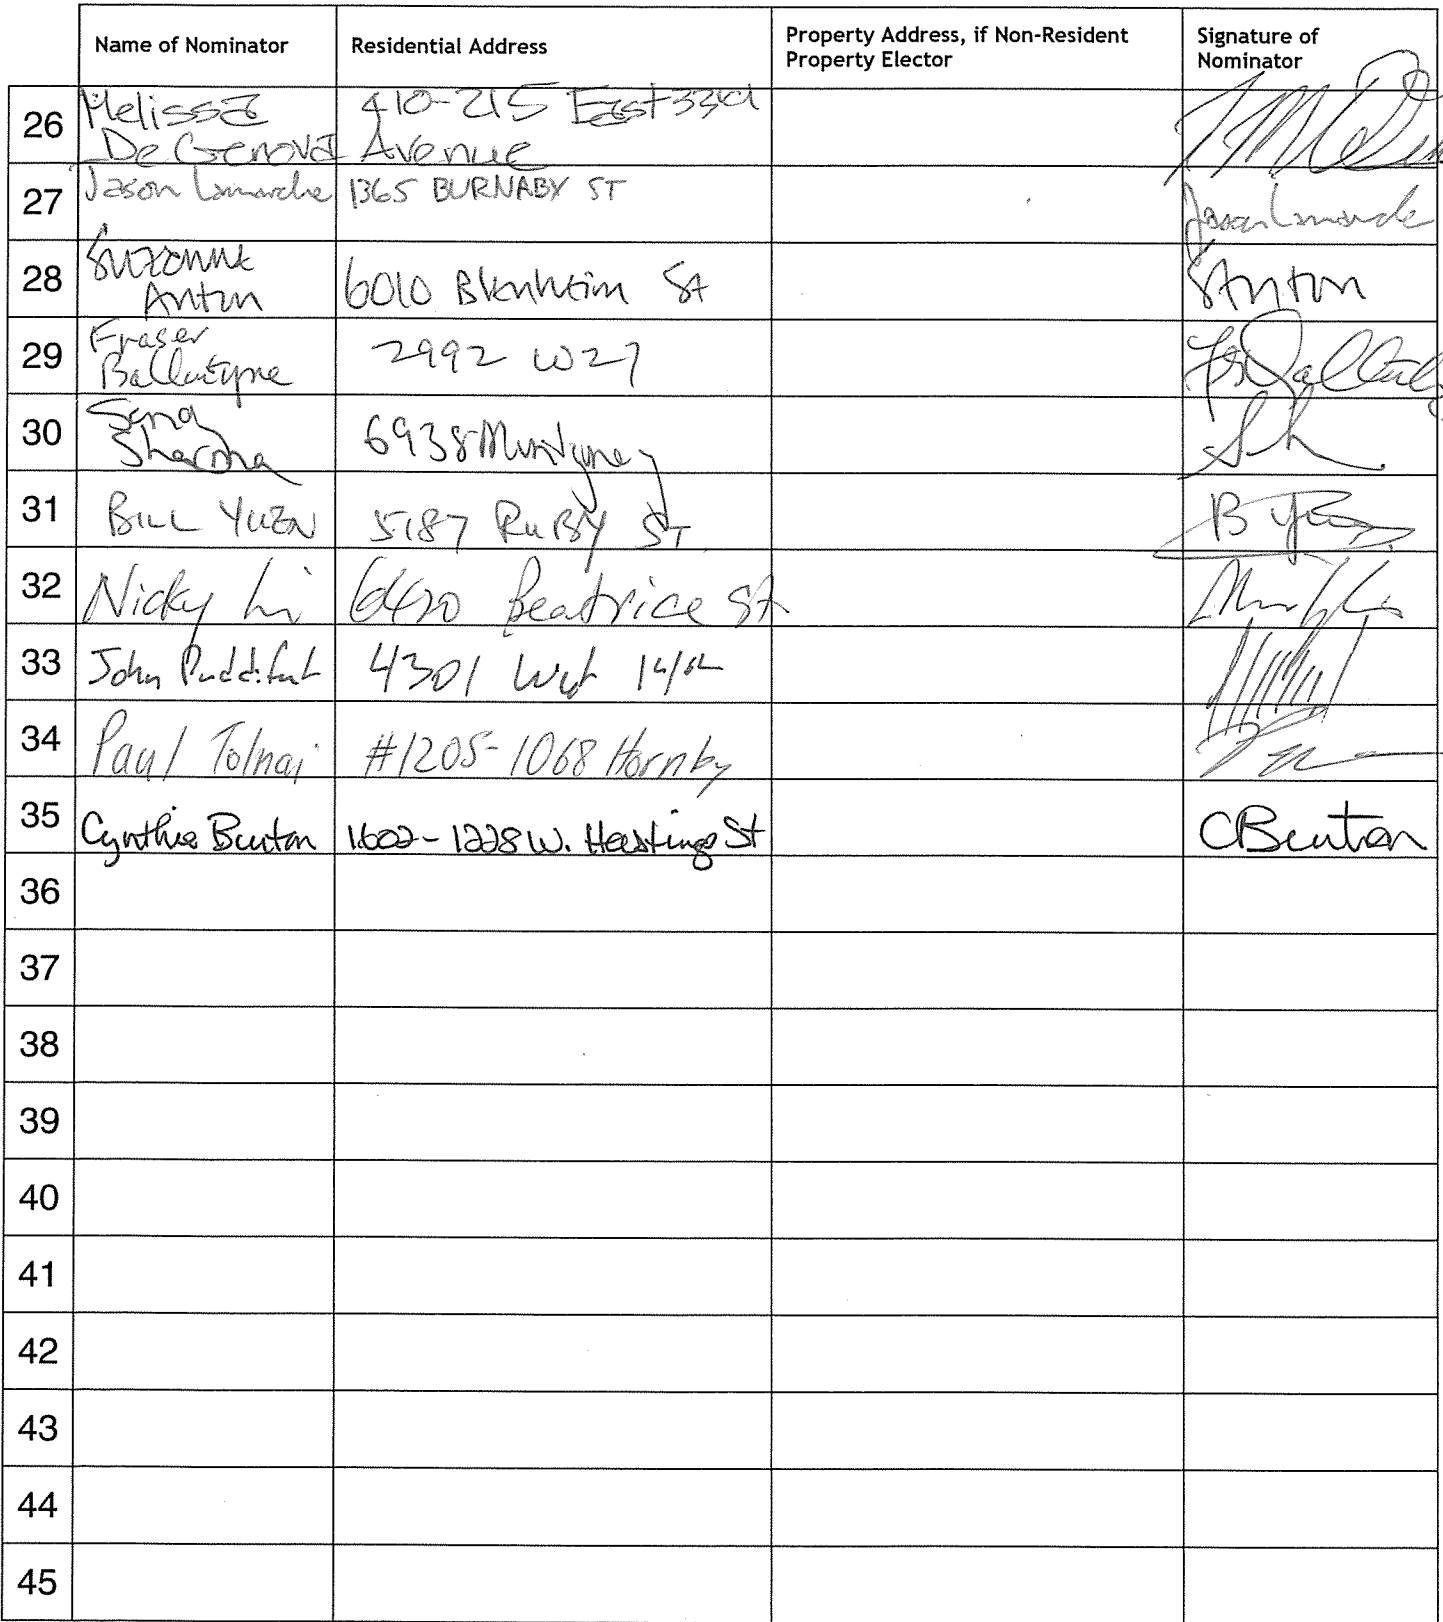 Name of Nominator Residential Address Property Address, if Non-Resident Property Elector Signature of Nominator
26 Melissa De Genova 410-215 East 33rd Avenue
27 Jason Lamarche 1365 BURNABY ST Jason Lamarche
28 Suzanne Anton 6010 Blenheim St SAnton
29 Fraser Ballantyne 2992 W27
30 Sharma 6938
31 BILL YUEN 5187 RUBY ST
32 Nicky Li 6420 Beatrice St
33 John Puddifoot 4301 West 14th
34 Paul Tolnai #1205-1068 Hornby
35 Cynthia Burton 1602-1228 W. Hastings St CBurton
36
37
38
39
40
41
42
43
44
45